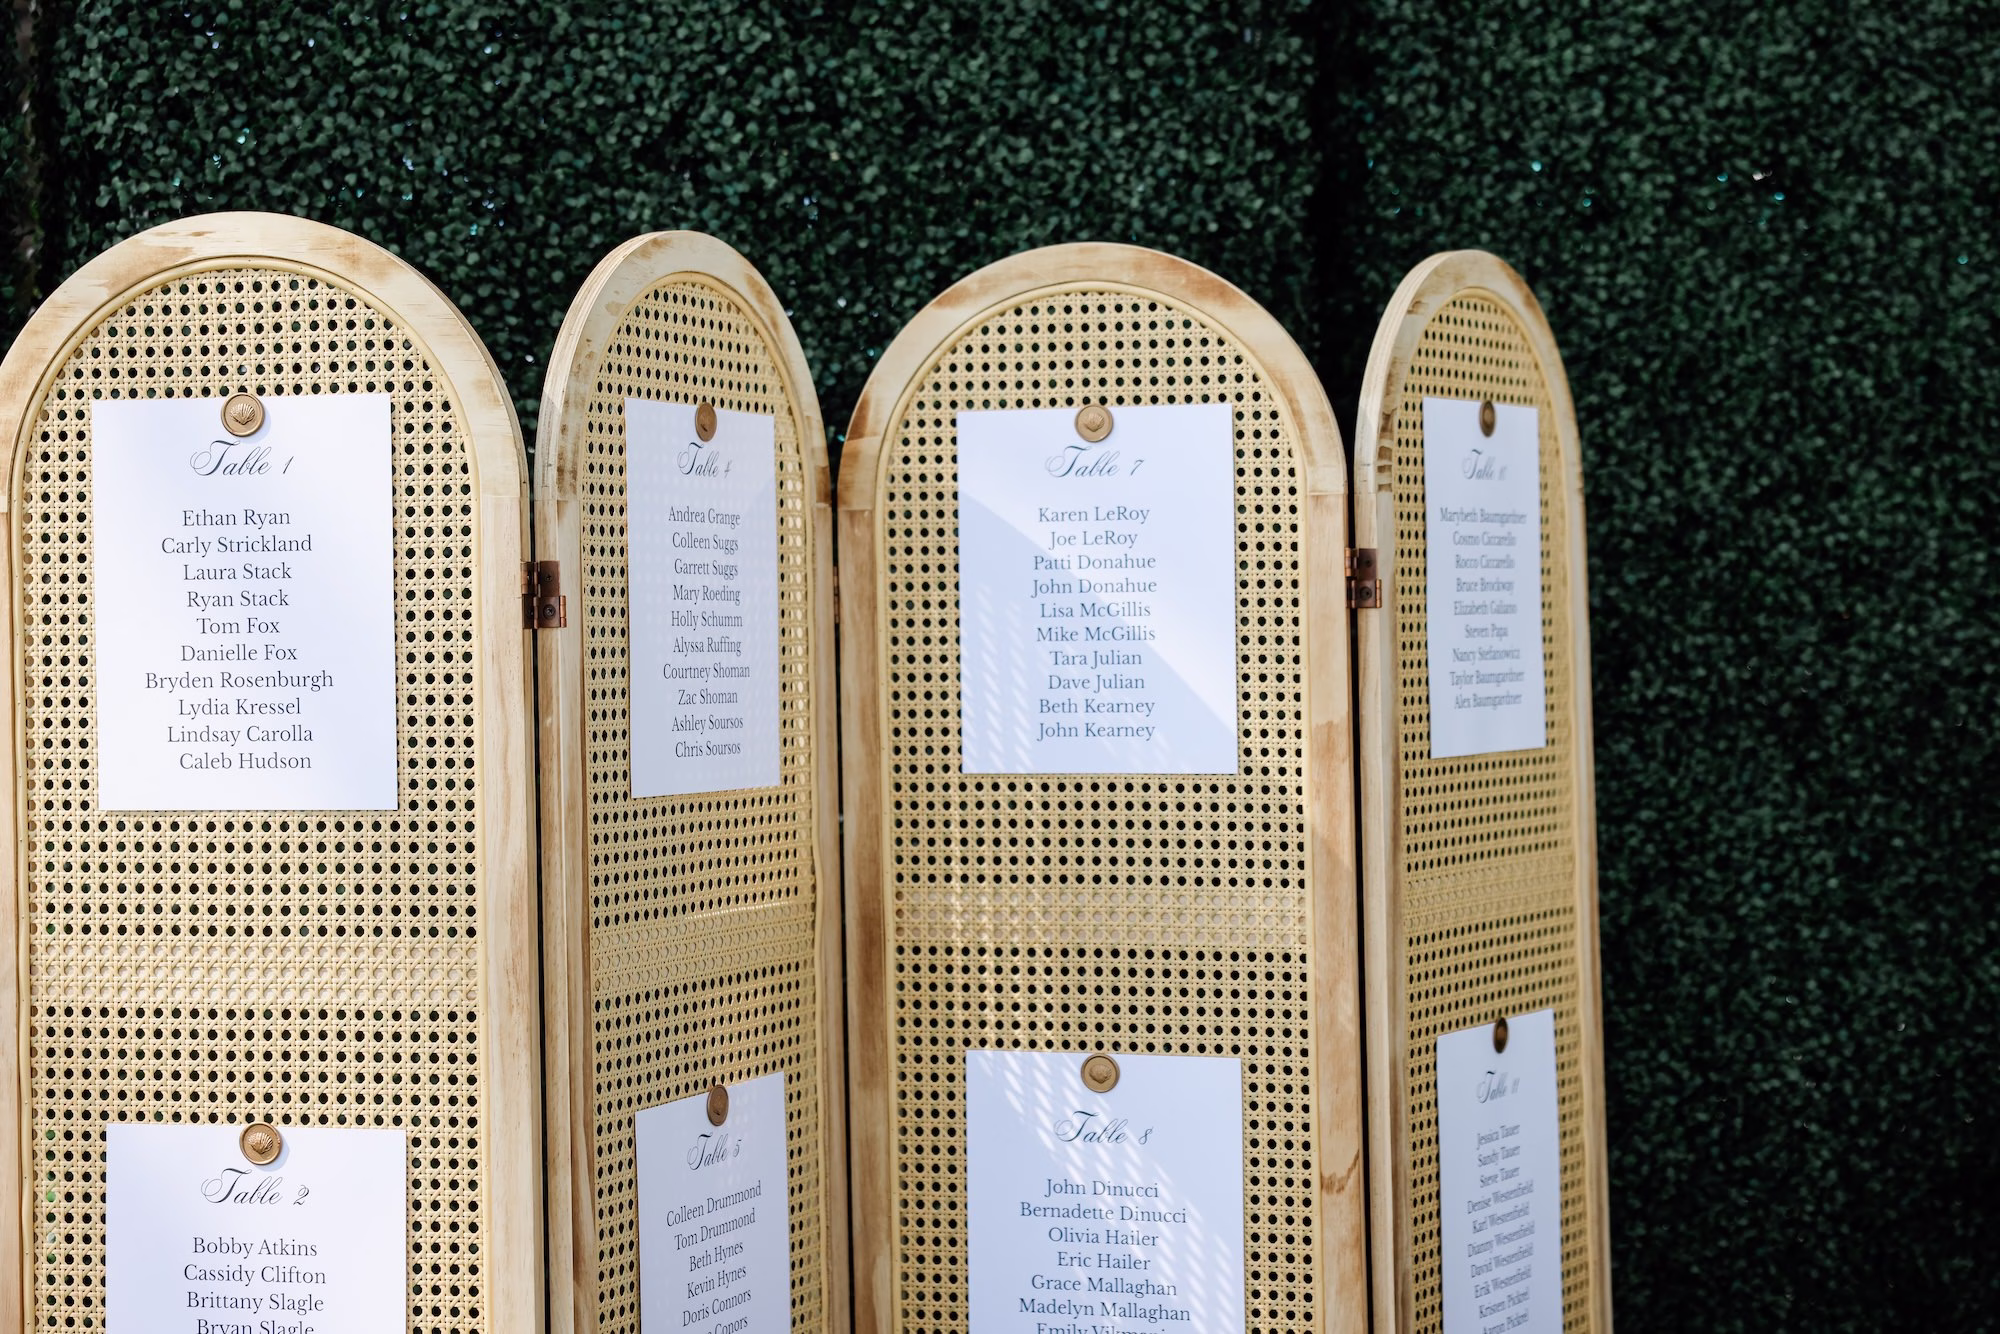 Table 1
Ethan Ryan
Carly Strickland
Laura Stack
Ryan Stack
Tom Fox
Danielle Fox
Bryden Rosenburgh
Lydia Kressel
Lindsay Carolla
Caleb Hudson
Table 2
Bobby Atkins
Cassidy Clifton
Brittany Slagle
Bryan Slagle
Table 4
Andrea Grange
Colleen Suggs
Garrett Suggs
Mary Roeding
Holly Schumm
Alyssa Ruffing
Courtney Shoman
Zac Shoman
Ashley Soursos
Chris Soursos
Table 5
Colleen Drummond
Tom Drummond
Beth Hynes
Kevin Hynes
Doris Connors
Conors
Table 7
Karen LeRoy
Joe LeRoy
Patti Donahue
John Donahue
Lisa McGillis
Mike McGillis
Tara Julian
Dave Julian
Beth Kearney
John Kearney
Table 8
John Dinucci
Bernadette Dinucci
Olivia Hailer
Eric Hailer
Grace Mallaghan
Madelyn Mallaghan
Emily
Table 10
Marybeth Baumgardner
Cosmo Ciccarello
Rocco Ciccarello
Bruce Brockway
Elizabeth Galiano
Steven Papa
Nancy Stefanowicz
Taylor Baumgardner
Alex Baumgardner
Table 11
Jessica Tauer
Sandy Tauer
Steve Tauer
Denise Westenfield
Karl Westenfield
Dianny Westenfield
David Westenfield
Erik Westenfield
Kristen Pickrel
Aaron Pickrel